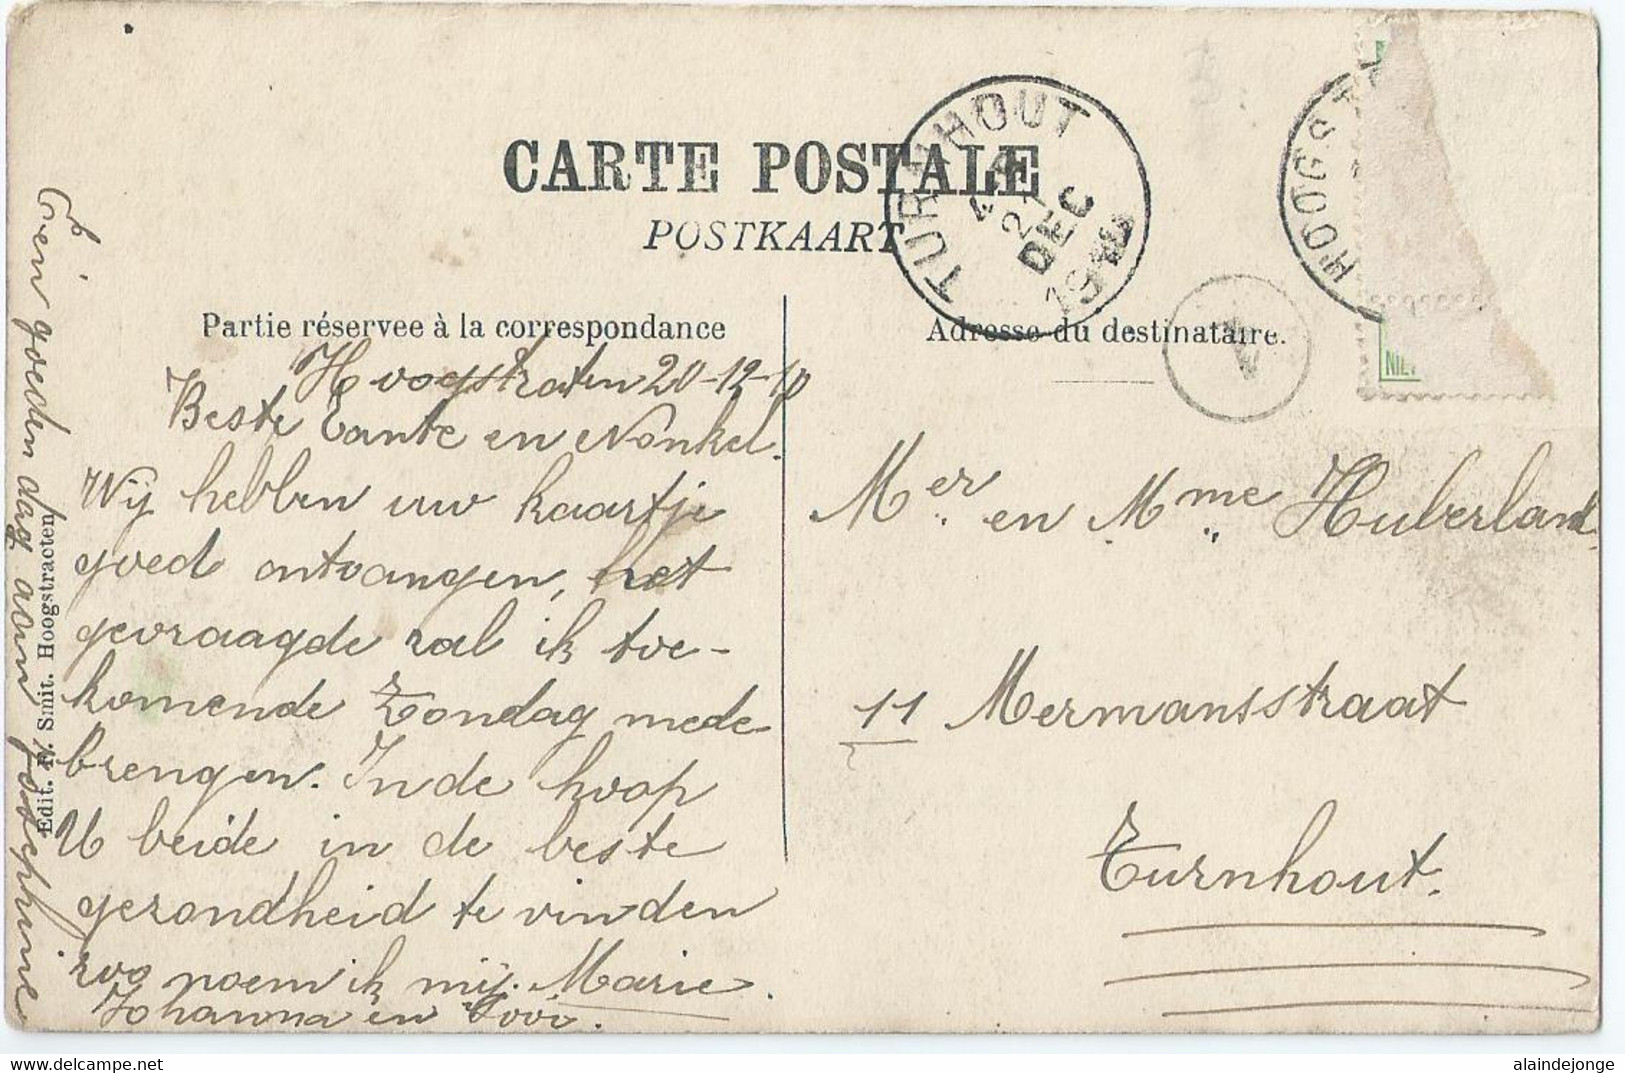 CARTE POSTALE
POSTKAART
TURNHOUT
21
DEC
HOOGST
Partie réservee à la correspondance
Adresse du destinataire.
Hoogstraten 20-12-10
Beste Tante en Nonkel.
Wij hebben uw kaartje
goed ontvangen, het
gevraagde zal ik toe-
komende Zondag mede
brengen. In de hoop
U beide in de beste
gezondheid te vinden
zoo noem ik mij. Marie.
Johanna en
Mer en Mme Huberland
11 Mermansstraat
Turnhout.
Een goeden dag aan Josephine
Edit. F. Smit. Hoogstraeten
NIE
alaindejonge
www.delcampe.net